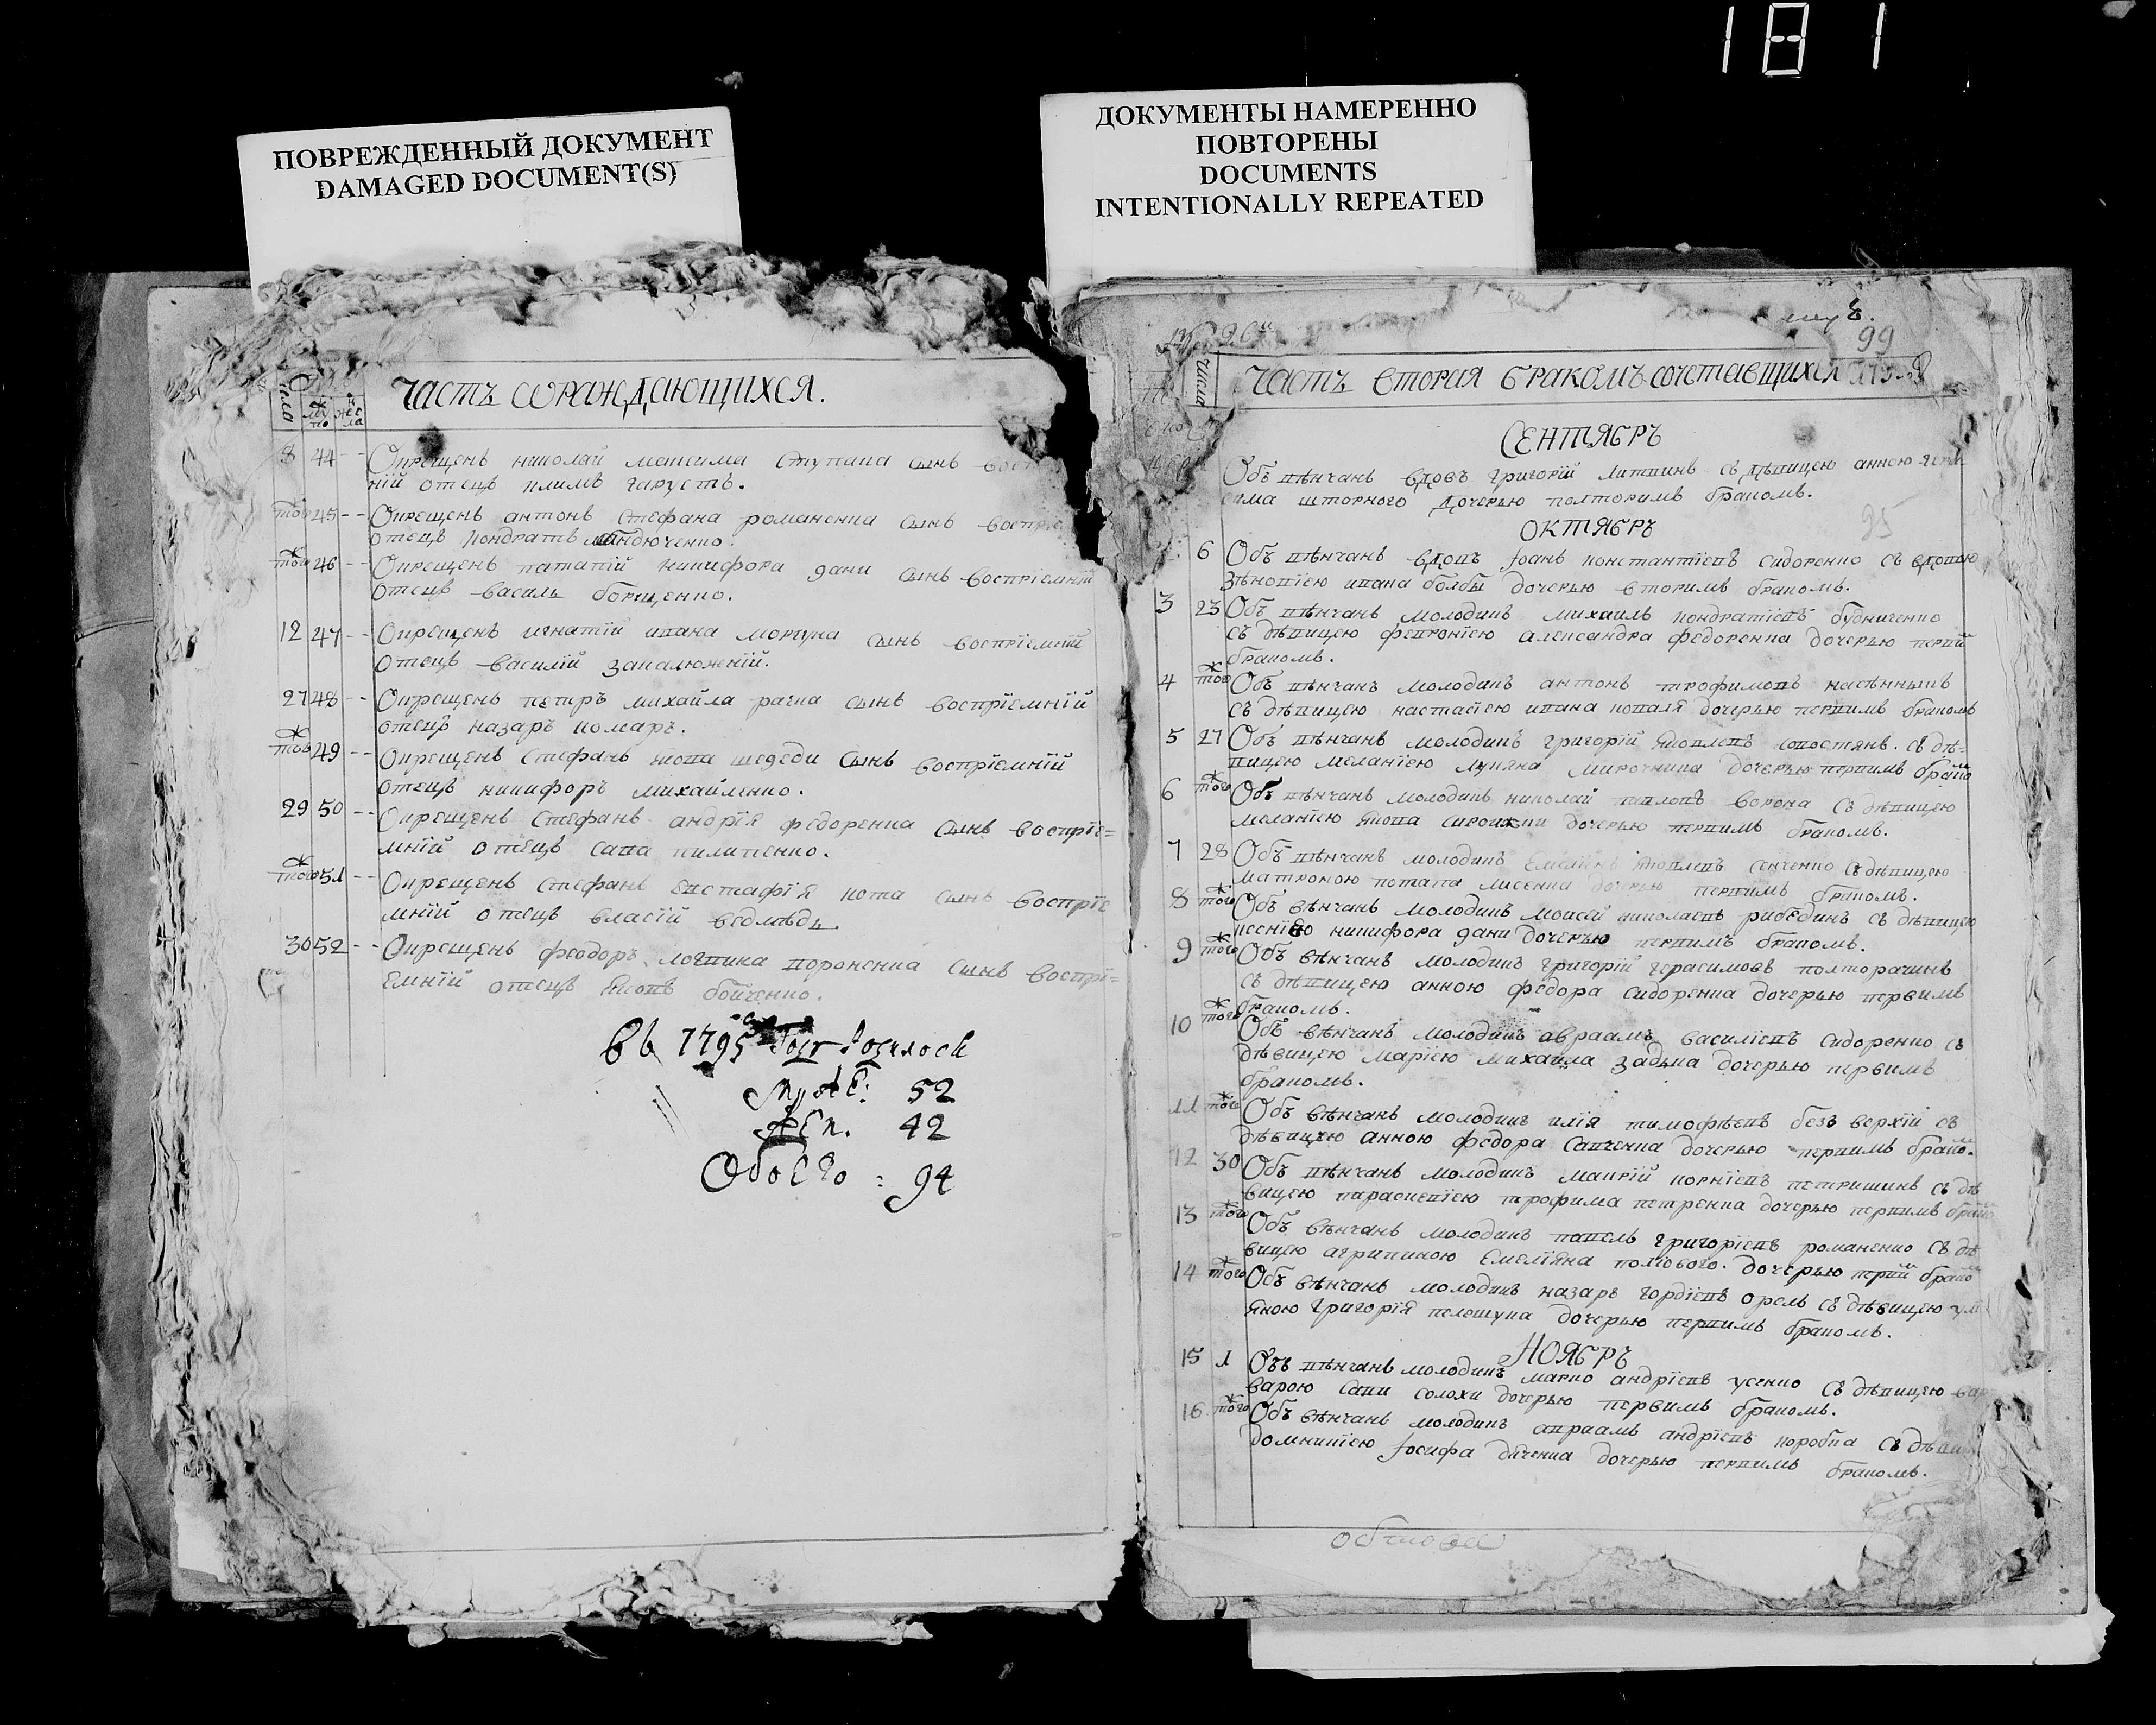 181
ПОВРЕЖДЕННЫЙ ДОКУМЕНТ
DAMAGED DOCUMENT(S)
ДОКУМЕНТЫ НАМЕРЕННО
ПОВТОРЕНЫ
DOCUMENTS
INTENTIONALLY REPEATED
ЧАСТЬ СОРАЖДАЮЩИХСЯ.
8 44 -- Окрещенъ николай максима ступака сынъ
ній отецъ климъ гарустъ.
того 45 -- Окрещенъ антонъ стефана романенка сынъ воспріе
отецъ кондратъ
того 46 -- Окрещенъ патапій никифора дани сынъ воспріемній
отецъ василь борщенко.
12 47 -- Окрещенъ игнатій ивана моргуна сынъ воспріемній
отецъ василій закалюжній.
27 48 -- Окрещенъ петръ михайла рачка сынъ воспріемній
отецъ назаръ комаръ.
того 49 -- Окрещенъ стефанъ якова шедеди сынъ воспріемній
отецъ никифоръ михайленко.
29 50 -- Окрещенъ стефанъ андрія федоренка сынъ воспріе=
мній отецъ сава пилипенко.
того 51 -- Окрещенъ стефанъ евстафія кота сынъ воспріе
мній отецъ власій ведмѣдь
30 52 -- Окрещенъ феодоръ логвина вороненка сынъ воспрі=
емній отецъ яковъ бойченко.
Въ 1795 Году родилось
Муже: 52
Жен. 42
Обоего : 94
99
числа
ЧАСТЬ ВТОРАЯ БРАКОМЪ СОЧЕТАВШИХСЯ
СЕНТЯБРЬ
Объ вѣнчанъ вдовъ григорій литвинъ съ дѣвицею анною
сима шторного дочерью повторимъ бракомъ.
ОКТЯБРЬ
95
6 Объ вѣнчанъ вдовъ Іоанъ константіевъ сидоренко съ вдовою
зѣновіею ивана болбы дочерью вторимъ бракомъ.
3 23 Объ вѣнчанъ молодикъ михаилъ кондратіевъ будниченко
съ дѣвицею февроніею александра федоренка дочерью первій
бракомъ.
4 того Объ вѣнчанъ молодикъ антонъ трофимовъ
съ дѣвицею настасіею ивана коваля дочерью первимъ бракомъ
5 27 Объ вѣнчанъ молодикъ григорій яковлевъ сопостянъ. съ дѣ=
вицею меланіею лукяна мирочника дочерью первимъ брако
6 того Объ вѣнчанъ молодикъ николай павловъ ворона съ дѣвицею
меланіею якова дочерью первимъ бракомъ.
7 28 Объ вѣнчанъ молодикъ яковлевъ сенченко съ дѣвицею
матроною потапа лисенка дочерью первимъ бракомъ.
8 того Объ вѣнчанъ молодикъ моисей николаевъ съ дѣвицею
ксенією никифора дани дочерью первимъ бракомъ.
9 того Объ вѣнчанъ молодикъ григорій герасимовъ полторачинъ
съ дѣвицею анною федора сидоренка дочерью первимъ
бракомъ.
10 того Объ вѣнчанъ молодикъ авраамъ василіевъ сидоренко съ
дѣвицею маріею михайла задка дочерью первимъ
бракомъ.
11 того Объ вѣнчанъ молодикъ илія тимофѣевъ безъ верхій съ
дѣвицею анною федора савченка дочерью первимъ брако.
12 30 Объ вѣнчанъ молодикъ маврій корніевъ петришинъ съ дѣ
вицею параскевіею трофима петренка дочерью первимъ брако
13 того Объ вѣнчанъ молодикъ павелъ григоріевъ романенко съ дѣ
вицею агрипиною емеліяна полівого. дочерью первій брако
14 того Объ вѣнчанъ молодикъ назаръ гордіевъ орелъ съ дѣвицею улі
яною григорія телешуна дочерью первимъ бракомъ.
НОЯБРЬ
15 1 Объ вѣнчанъ молодикъ марко андріевъ усенко съ дѣвицею вар
варою сави солохи дочерью первимъ бракомъ.
16 того Объ вѣнчанъ молодикъ авраамъ андріевъ коробка съ дѣвиц
домникіею Іосифа дяченка дочерью первимъ бракомъ.